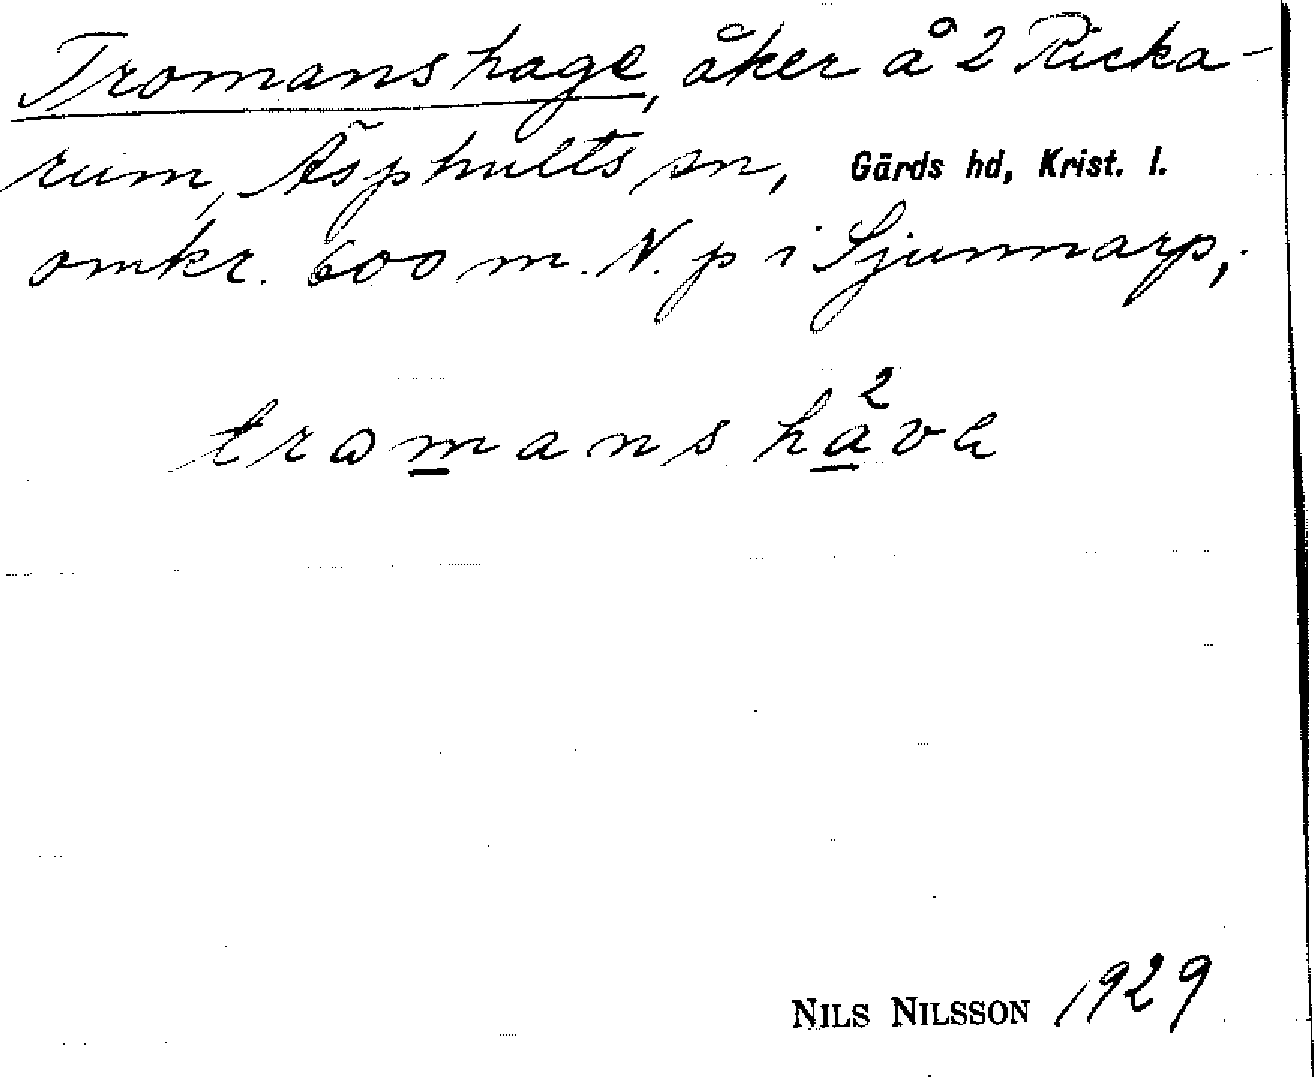 Tromanshage, åker å 2 Ricka-
rum, Äsphults sn, Gärds hd, Krist. l.
omkr. 600 m. N. p i Sjunnarp,.
tromanshava 2
NILS NILSSON 1929